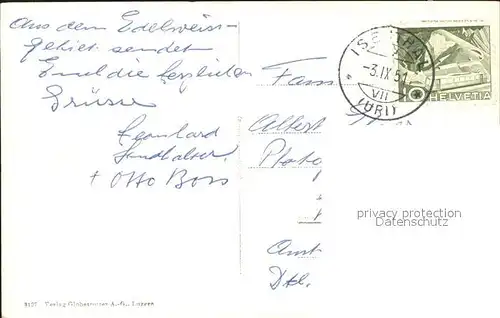 Aus dem Edelweiss-
gebiet sendet
Emil die herzlichen
Grüsse
Leonhard
+ Otto Boss
Fam
Albert
Photo
Amt
Dkl.
ISENTHAL
-3.IX 51
VII
(URI)
HELVETIA
privacy protection
Datenschutz
9157 Verlag Globetrotter A.-G., Luzern